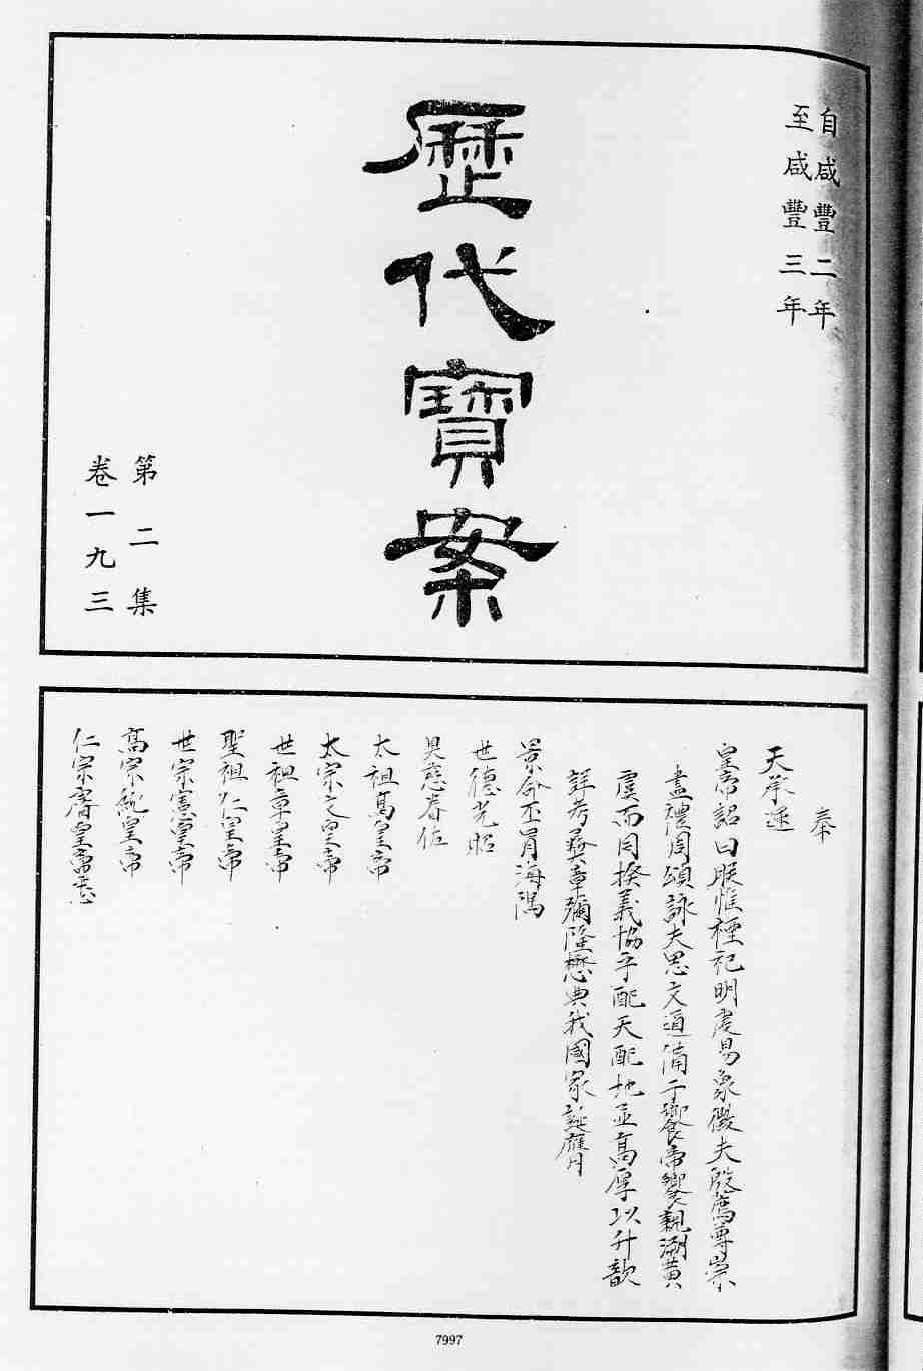 自咸豐二年
至咸豐三年
歷代寶案
第二集
卷一九三
奉
天承運
皇帝詔曰朕惟禋祀明虔易象徵夫殷薦尊崇
盡禮周頌詠夫思文道備于饗帝饗親溯黃
虞而同揆義協乎配天配地並高厚以升歆
詳考彝章彌隆懋典我國家誕膺
景命丕冒海隅
世德光昭
昊慈眷佑
太祖高皇帝
太宗文皇帝
世祖章皇帝
聖祖仁皇帝
世宗憲皇帝
高宗純皇帝
仁宗睿皇帝
7997